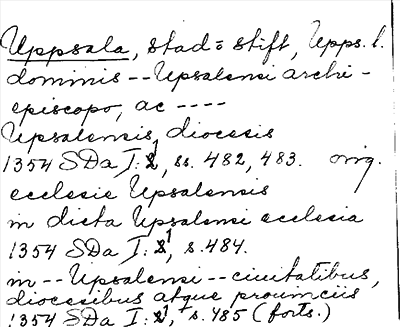 Uppsala, stad o stift, Upps. l.
dominis -- Upsalensi archi-
episcopo, ac ----
Upsalensis, diocesis
1354 SDa I:1, ss. 482, 483. orig.
ecclesie Upsalensis
in dicta Upsalensi ecclesia
1354 SDa I:1, s. 484.
in -- Upsalensi -- ciuitatibus,
diocesibus atque prouinciis
1354 SDa I:1, s. 485 (forts.)